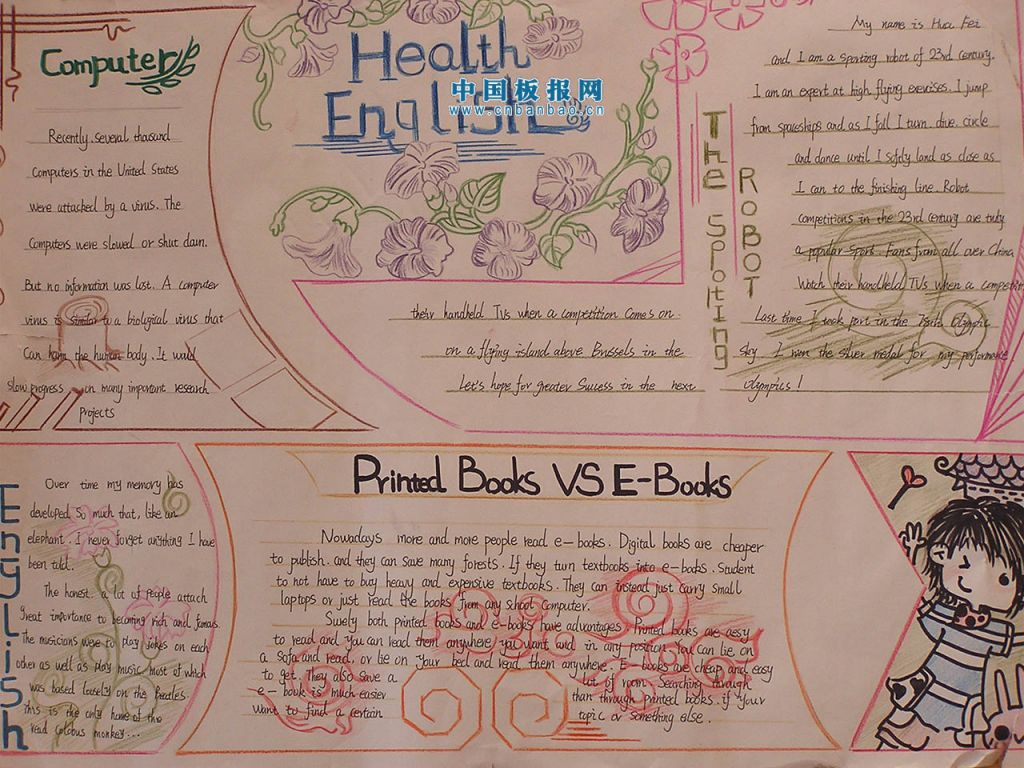 Computer
Recently, several thousand
Computers in the United States
were attacked by a virus. The
Computers were slowed or shut down.
But no information was lost. A computer
virus is similar to a biological virus that
Can harm the human body. It would
slow progress on many important research
Projects
Health
English
中国板报网
www.cnbanbao.cn
The Spotting
ROBOT
My name is Hua Fei
and I am a sporting robot of 23rd century.
I am an expert at high flying exervises. I jump
from spaceships and as I fall I turn. dive. circle
and dance until I softly land as close as
I can to the finishing line. Robot
competitions in the 23rd century are truly
a popular sport. Fans from all over China
Watch their handheld TVs when a competition
their handheld TVs when a competition comes on
on a flying island above Brussels in the
Let's hope for greater Success in the next
Last time I took part in the Olympic
sky. I won the silver medal for my performance
Olympics!
English
Over time my memory has
developed So much that, like an
elephant. I never forget anything I have
been told.
The honest. a lot of people attach
great importance to becoming rich and famous.
The musicians were to play jokes on each
other as well as play music most of which
was based loosely on the Beatles.
This is the only home of the
read colobus monkey...
Printed Books VS E-Books
Nowadays more and more people read e-books. Digital books are cheaper
to publish. and they can save many forests. If they turn textbooks into e-books. Student
to not have to buy heavy and expensive textbooks. They can instead just carry small
laptops or just read the books from any school computer.
Suely both printed books and e-books have advantages. Printed books are aesy
to read and you can read them anywhere you want and in any position. You can lie on
a sofa and read, or lie on your bed and read them anywhere. E-books are cheap and easy
to get. They also save a lot of room. Searching through
e-book is much easier than through printed books. if your
want to find a certain topic or something else.